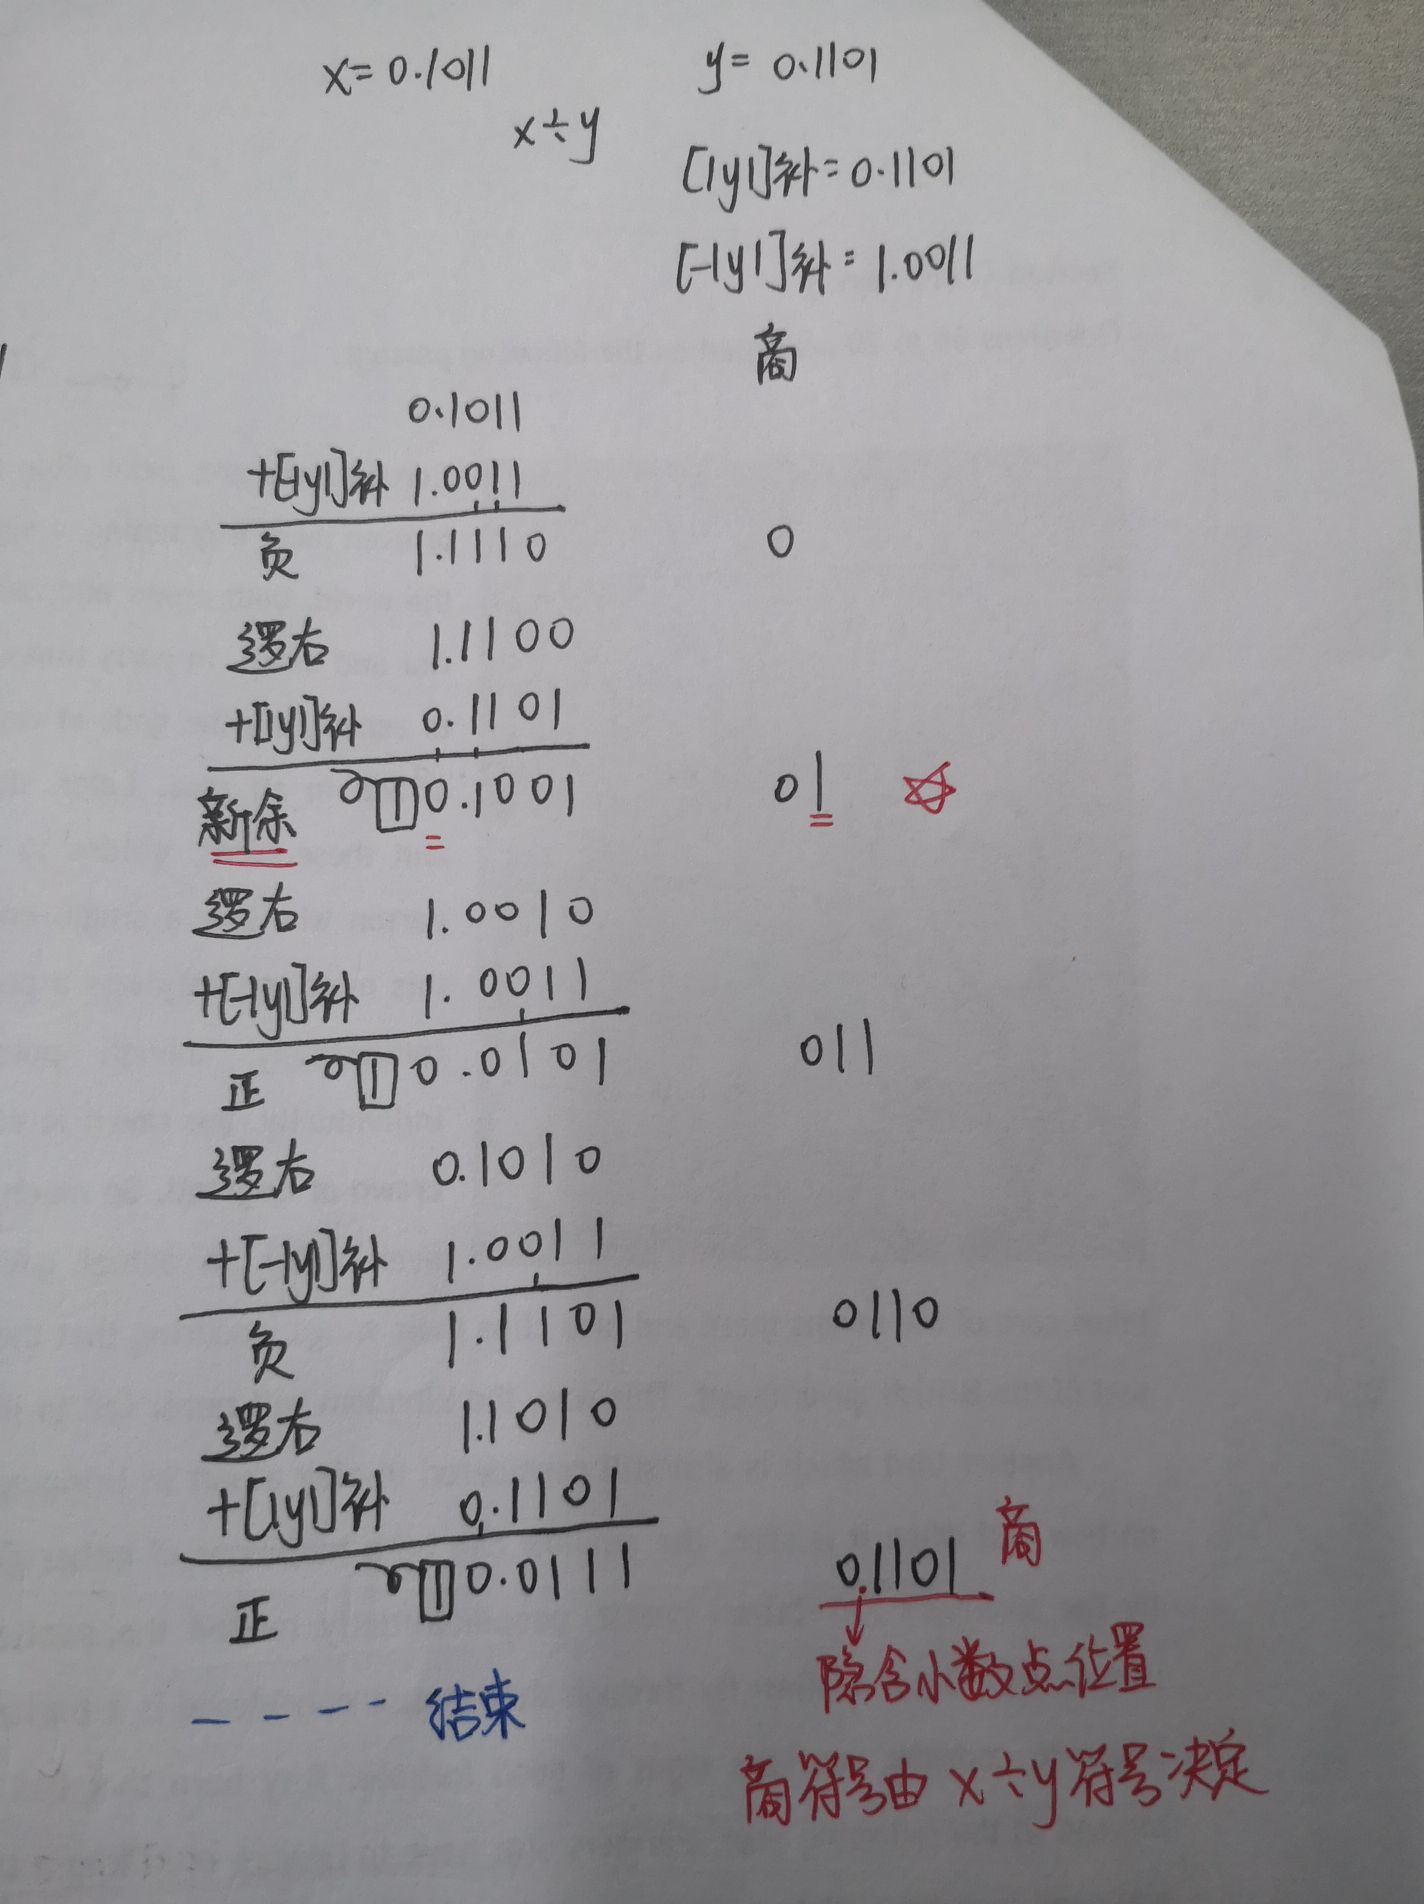 x=0.1011 y= 0.1101
x÷y
[|y|]补=0.1101
[-|y|]补=1.0011
商
0.1011
+[-|y|]补 1.0011
负 1.1110 0
逻左 1.1100
+[|y|]补 0.1101
新余 1 0.1001 01
逻左 1.0010
+[-|y|]补 1.0011
正 1 0.0101 011
逻左 0.1010
+[-|y|]补 1.0011
负 1.1101 0110
逻左 1.1010
+[|y|]补 0.1101
正 1 0.0111 0.1101 商
---- 结束
隐含小数点位置
商符号由 x÷y 符号决定